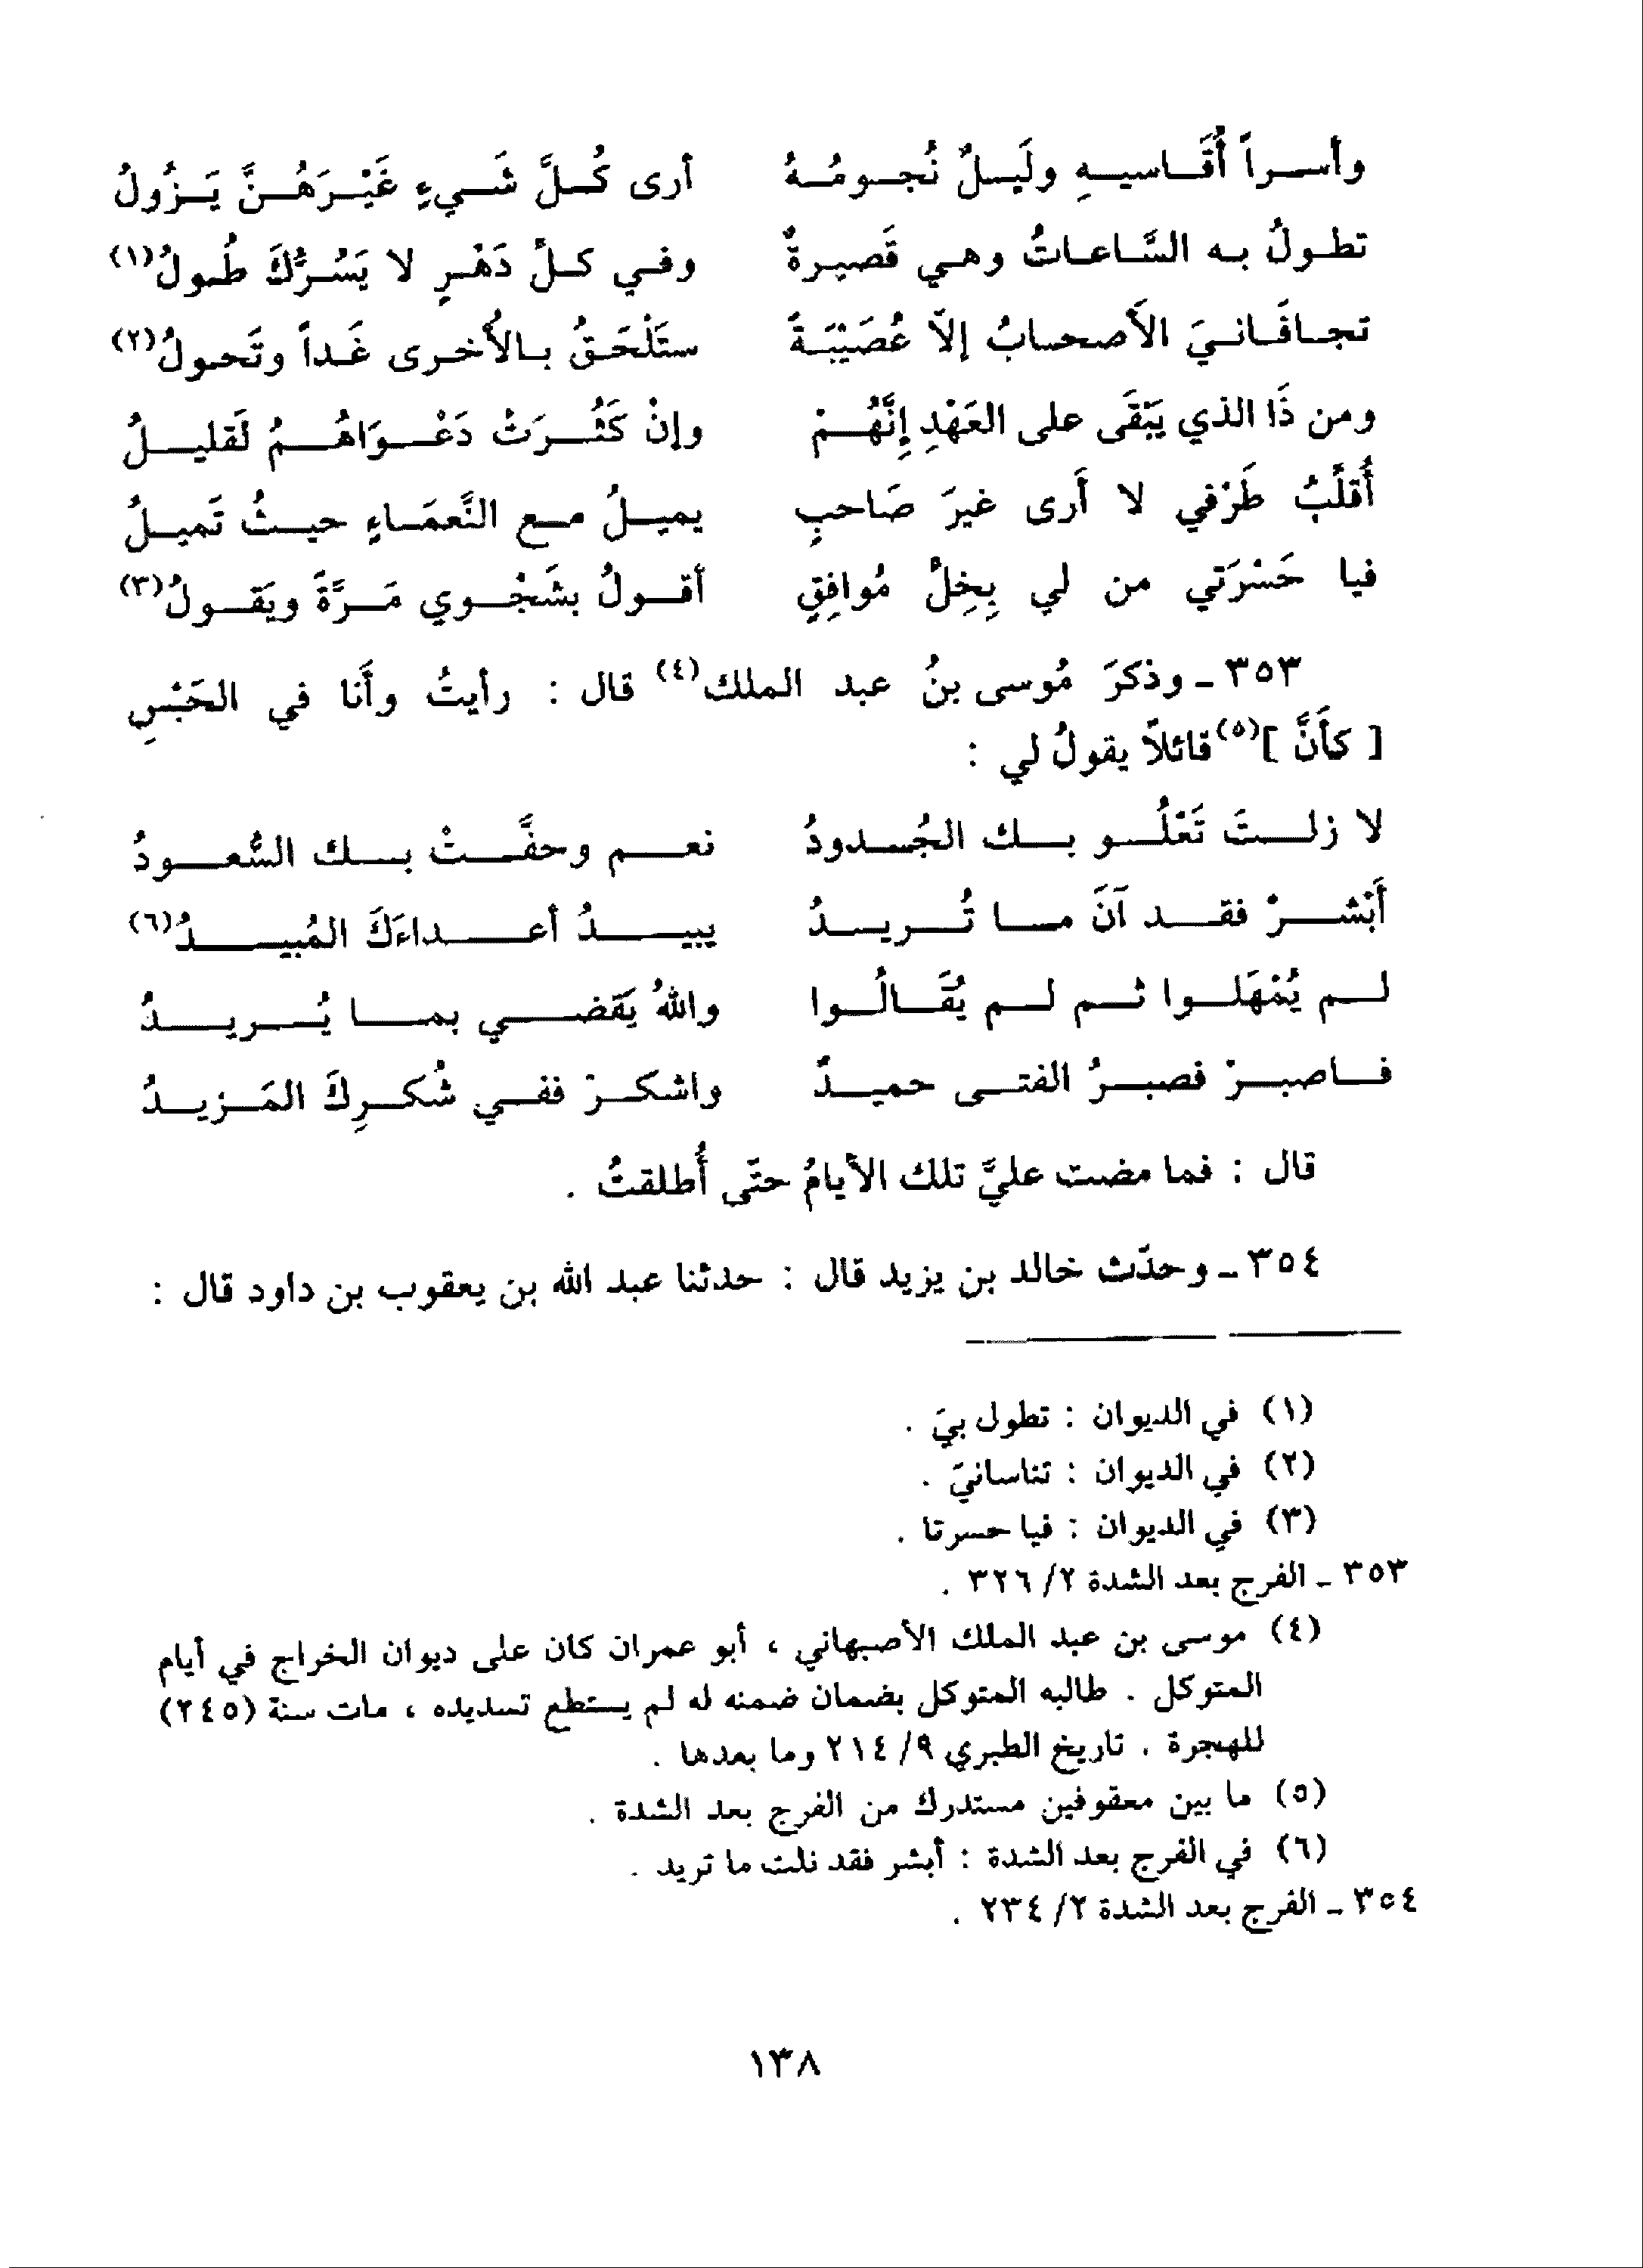 وأسراً أُقَاسيهِ ولَيلٌ نُجومُهُ أرى كُلَّ شَيءٍ غَيْرَهُنَّ يَزُولُ
تطولُ به السَّاعاتُ وهي قَصيرةٌ وفي كلِّ دَهْرٍ لا يَسُرُّكَ طُولُ(١)
تجافَانيَ الأَصحابُ إلاّ عُصَيْبَةً ستَلْحَقُ بالأُخرى غَداً وتَحولُ(٢)
ومن ذَا الذي يَبْقَى على العَهْدِ إِنَّهُمْ وإنْ كَثُرَتْ دَعْوَاهُمُ لَقليلُ
أُقلِّبُ طَرْفي لا أَرى غيرَ صَاحبٍ يميلُ مع النَّعمَاءِ حيثُ تَميلُ
فيا حَسْرَتي من لي بِخِلٍّ مُوافِقٍ أقولُ بشَجْوي مَرَّةً ويَقولُ(٣)
٣٥٣ ـ وذكرَ مُوسى بنُ عبد الملك(٤) قال : رأيتُ وأَنا في الحَبْسِ
[ كأَنَّ ](٥) قائلاً يقولُ لي :
لا زلتَ تَعْلُو بك الجُدودُ نعم وحفَّتْ بك السُّعودُ
أَبْشرْ فقد آنَ ما تُريدُ يبيدُ أعداءَكَ المُبيدُ(٦)
لم يُمْهَلوا ثم لم يُقَالُوا واللهُ يَقضي بما يُريدُ
فاصبرْ فصبرُ الفتى حميدٌ واشكرْ ففي شُكرِكَ المَزيدُ
قال : فما مضت عليَّ تلك الأيامُ حتّى أُطلقتُ .
٣٥٤ ـ وحدّث خالد بن يزيد قال : حدثنا عبد الله بن يعقوب بن داود قال :
(١) في الديوان : تطول بيَ .
(٢) في الديوان : تناسانيَ .
(٣) في الديوان : فيا حسرتا .
٣٥٣ ـ الفرج بعد الشدة ٢/ ٣٢٦ .
(٤) موسى بن عبد الملك الأصبهاني ، أبو عمران كان على ديوان الخراج في أيام
المتوكل . طالبه المتوكل بضمان ضمنه له لم يستطع تسديده ، مات سنة (٢٤٥)
للهجرة . تاريخ الطبري ٩/ ٢١٤ وما بعدها .
(٥) ما بين معقوفين مستدرك من الفرج بعد الشدة .
(٦) في الفرج بعد الشدة : أبشر فقد نلت ما تريد .
٣٥٤ ـ الفرج بعد الشدة ٢/ ٢٣٤ .
١٣٨